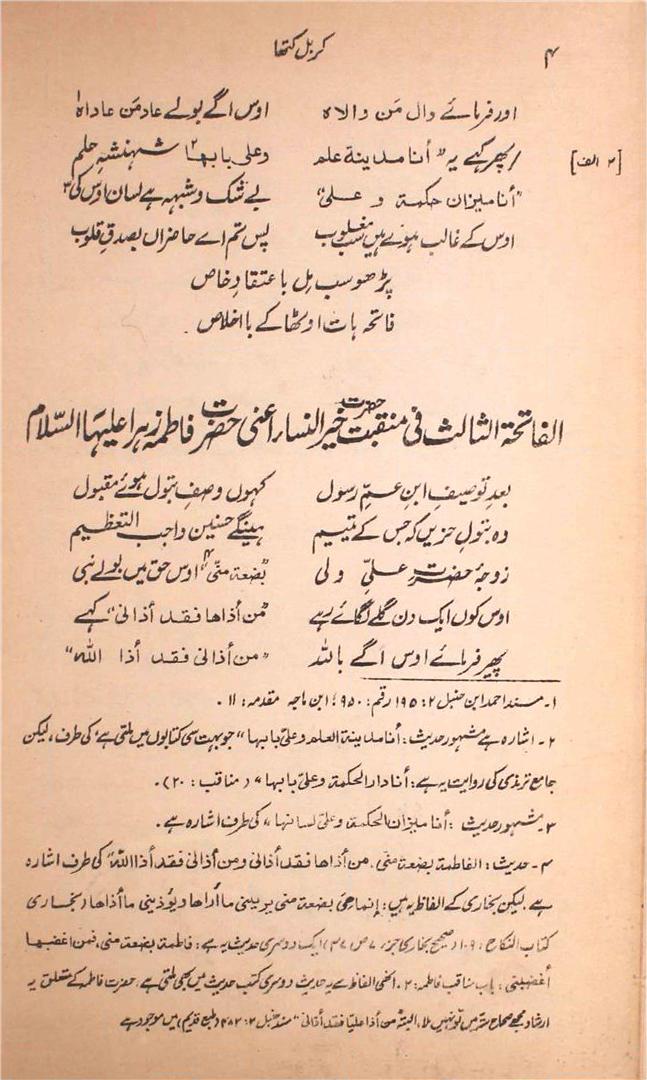 ۴
کربل کتھا
اور فرمائے وال مَن والاہ اوس آگے بولے عاد مَن عاداہ
[۲ الف] پھر کہے یہ "أنا مدینة علم وعلی بابہا"۲ شہنشہِ حلم
"أنا میزان حکمة و علیؑ" بے شک و شبہہ ہے لسان اوس کی۳
اوس کے غالب ہوئے ہیں سب مغلوب پس تم اے حاضراں بصدقِ قلوب
پڑھو سب مل باعتقادِ خاص
فاتحہ ہات اوٹھا کے با اخلاص۔
الفاتحة الثالث فی منقبت حضرت خیر النساء اعنی حضرت فاطمہ زہرا علیہا السّلام
بعدِ توصیفِ ابنِ عمِّ رسول کہوں وصفِ بتول ہوئے مقبول
وہ بتولِ حزیں کہ جس کے یتیم ہینگے حسنین واجب التعظیم
زوجۂ حضرتِ علیِّ ولی "بضعة منّی"۴ اوس حق میں بولے نبی
اوس کوں ایک دن گلے لگائے رہے "من أذاها فقد أذانی" کہے
پھیر فرمائے اوس آگے باللہ "من أذانی فقد أذا اللہ"
۱۔ مسند احمد ابن حنبل ۲: ۱۹۵ رقم: ۹۵۰؛ ابن ماجہ مقدمہ: ۱۱۔
۲۔ اشارہ ہے مشہور حدیث: أنا مدینة العلم وعلیّ بابہا" جو بہت سی کتابوں میں ملتی ہے کی طرف، لیکن
جامع ترمذی کی روایت یہ ہے: أنا دار الحکمة وعلیّ بابہا" (مناقب: ۲۰)۔
۳۔ مشہور حدیث: أنا میزان الحکمة وعلیّ لسانہا" کی طرف اشارہ ہے۔
۴۔ حدیث: الفاطمة بضعة منّی، من أذاها فقد أذانی ومن أذانی فقد أذا اللہ" کی طرف اشارہ
ہے لیکن بخاری کے الفاظ یہ ہیں: إنما هی بضعة منی یریبنی ما أرابها ویؤذینی ما أذاها (بخاری
کتاب النکاح: ۱۰۹ (صحیح بخاری جزء ۷ ص ۳۷) ایک دوسری حدیث یہ ہے: فاطمة بضعة منی، فمن اغضبها
أغضبنی: باب مناقب فاطمہ: ۲۔ انھی الفاظ سے یہ حدیث دوسری کتب حدیث میں بھی ملتی ہے، حضرت فاطمہ کے متعلق یہ
ارشاد مجھے صحاح ستہ میں تو نہیں ملا، البتہ من أذا علیا فقد أذانی" مسند حنبل ۳: ۴۸۳ (طبع قدیم) میں موجود ہے